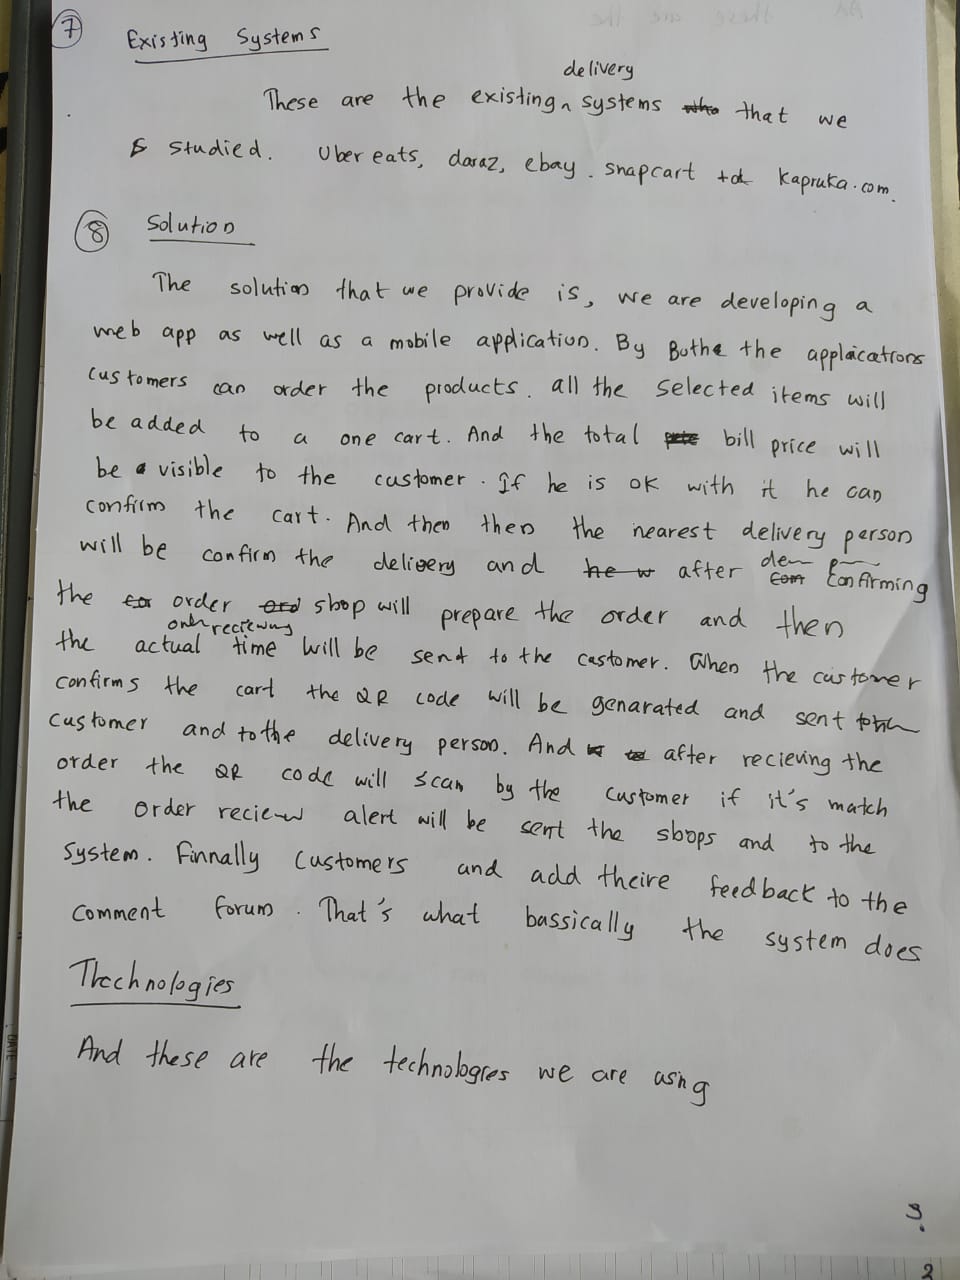 7
Existing Systems
delivery
These are the existing systems that we
studied. Uber eats, daraz, ebay. snapcart Kapruka.com.
8
Solution
The solution that we provide is, we are developing a
web app as well as a mobile application. By Bothe the applaications
customers can order the products. all the selected items will
be added to a one cart. And the total bill price will
be a visible to the customer. If he is ok with it he can
confirm the cart. And then then the nearest delivery person
will be confirm the delivery and after confirming
the order shop will prepare the order and then
order recieving
the actual time will be sent to the customer. When the customer
confirms the cart the QR code will be genarated and sent
customer and to the delivery person. And after recieving the
order the QR code will scan by the customer if it's match
the order reciew alert will be sent the shops and to the
system. Finnally customers and add theire feedback to the
comment forum. That's what bassically the system does
Thechnologies
And these are the technologies we are using
3
2
DATE